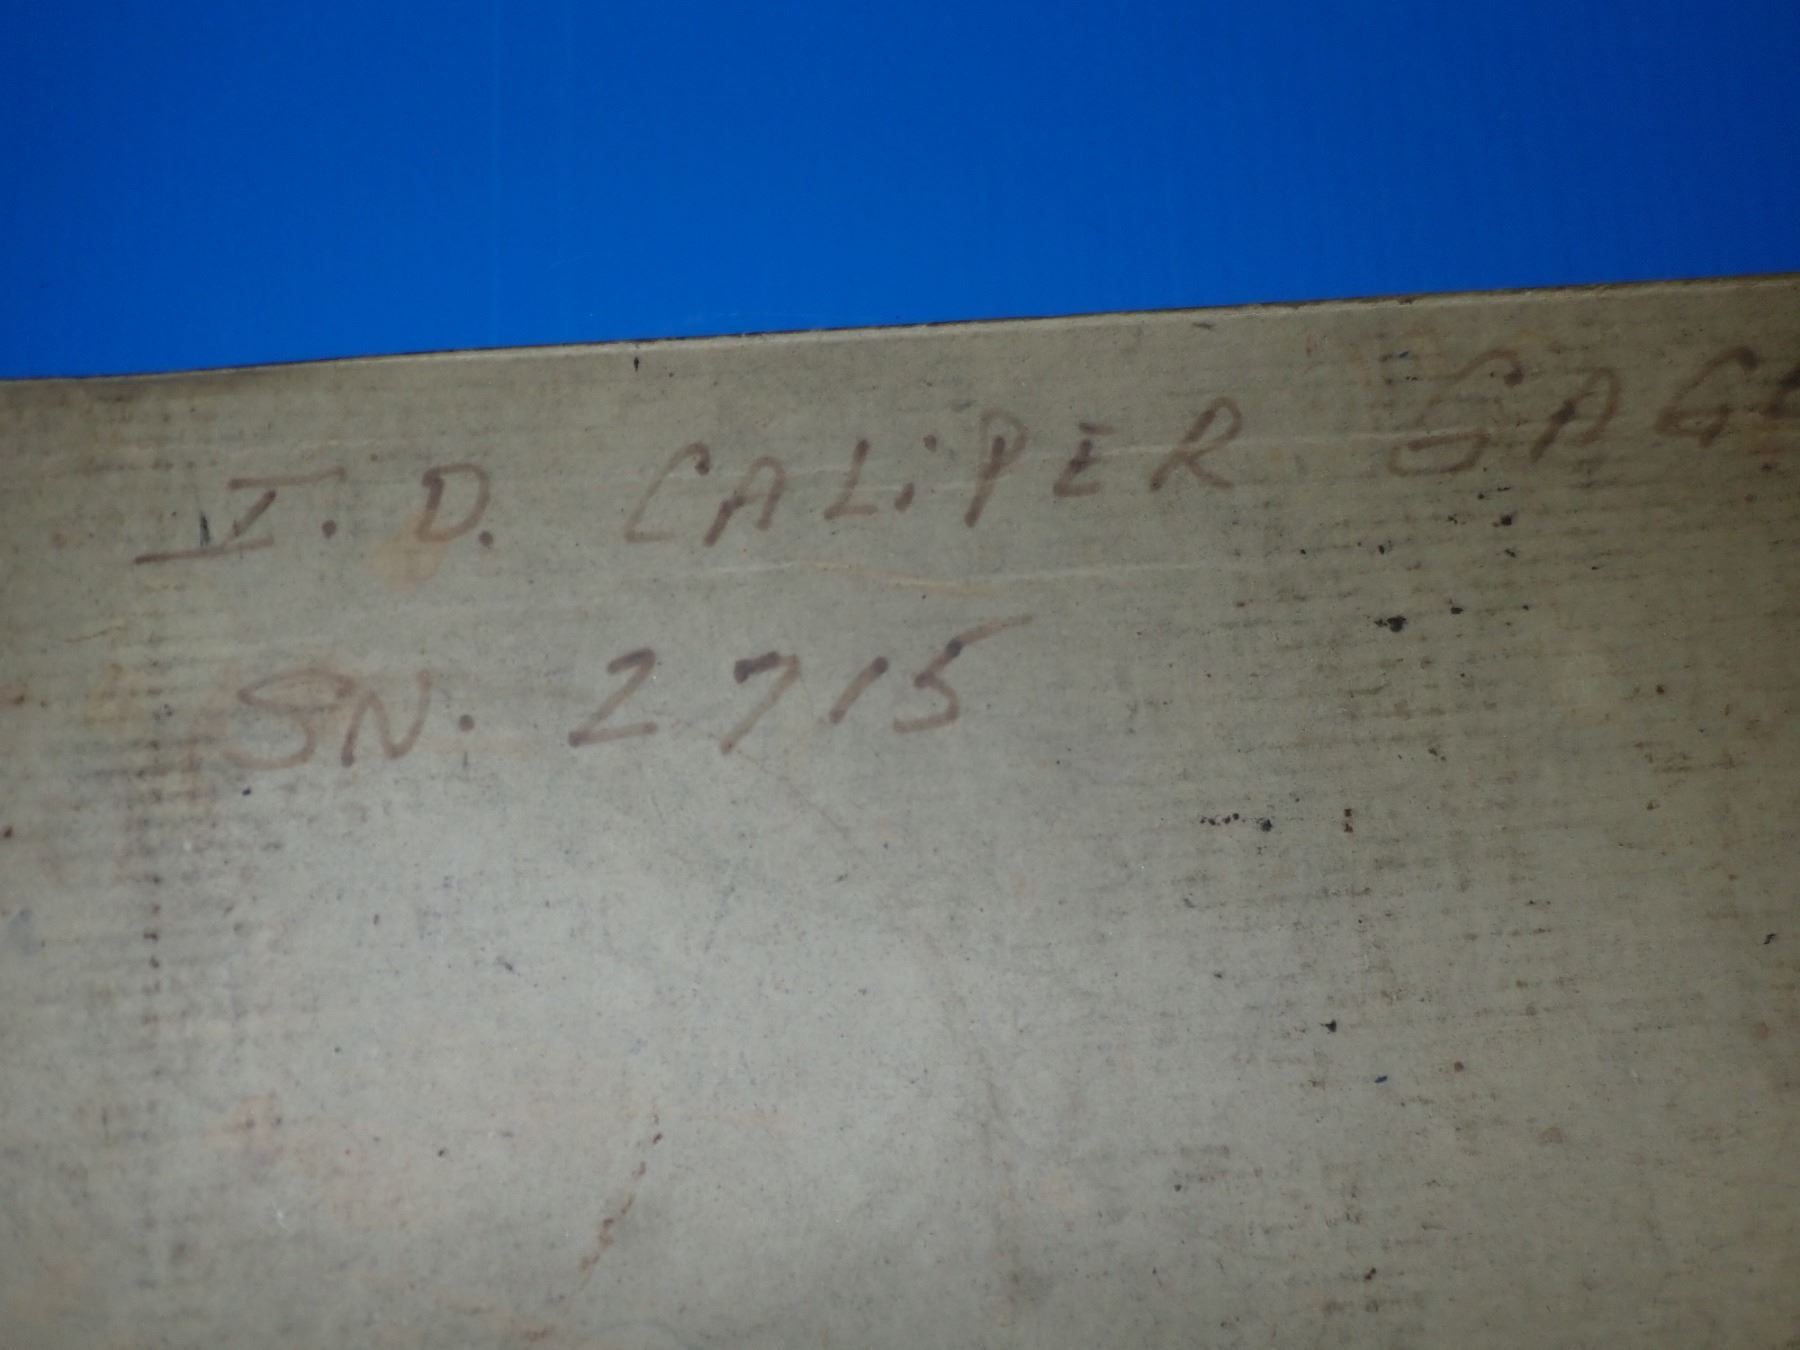 I. D. CALiPER GAGE
SN. 2715